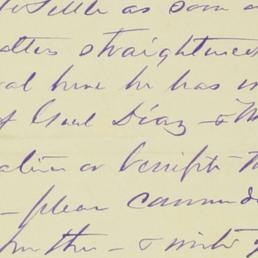 to settle as soon a
atters straightened
val here he has in
of Genl Diaz - & M
ation or benefit - th
- please comm
further - & write y